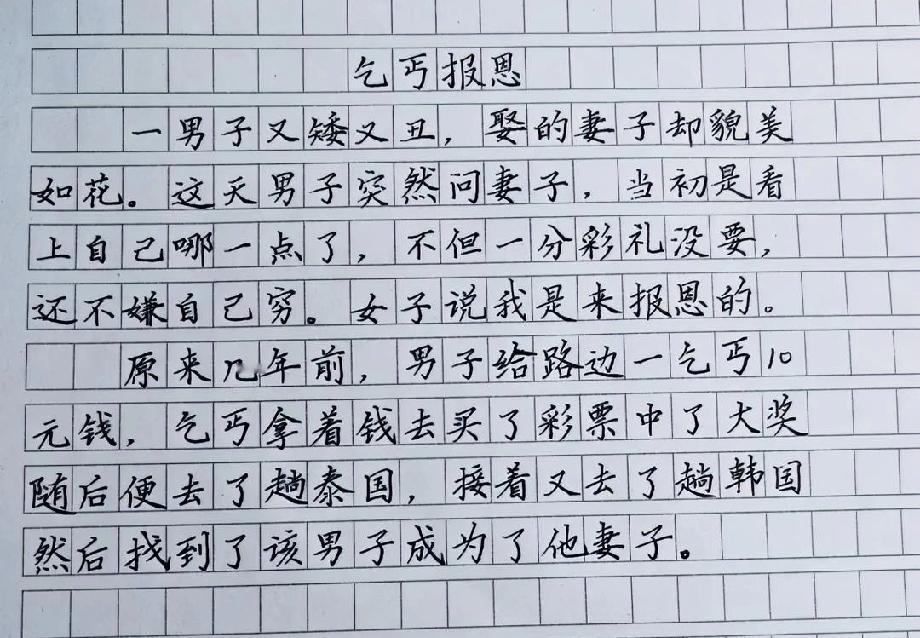 乞丐报恩
一男子又矮又丑，娶的妻子却貌美
如花。这天男子突然问妻子，当初是看
上自己哪一点了，不但一分彩礼没要，
还不嫌自己穷。女子说我是来报恩的。
原来几年前，男子给路边一乞丐10
元钱，乞丐拿着钱去买了彩票中了大奖
随后便去了趟泰国，接着又去了趟韩国
然后找到了该男子成为了他妻子。